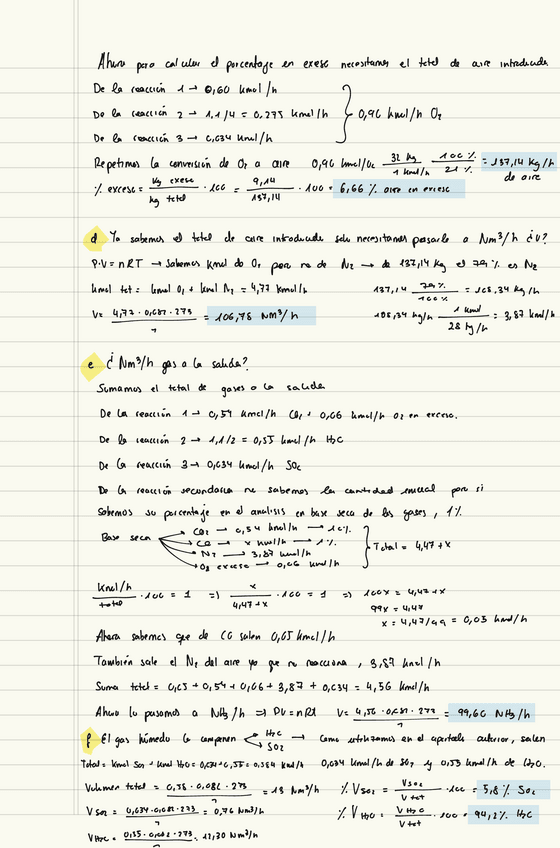 Ahora para calcular el porcentaje en exceso necesitamos el total de aire introducido
De la reacción 1 → 0,60 kmol/h
De la reacción 2 → 1,1/4 = 0,275 kmol/h
De la reacción 3 → 0,034 kmol/h
0,96 kmol/h O2
Repetimos la conversión de O2 a aire 0,96 kmol/O2 32 kg / 1 kmol/h 100 % / 21 % = 137,14 kg/h de aire
% exceso = kg exceso / kg total · 100 = 9,14 / 137,14 · 100 = 6,66 % aire en exceso
d Ya sabemos el total de aire introducido solo necesitamos pasarlo a Nm3/h ¿V?
P·V = nRT → Sabemos kmol de O2 pero no de N2 → de 137,14 kg el 79 % es N2
kmol tot = kmol O2 + kmol N2 = 4,77 kmol/h 137,14 79 % / 100 % = 108,34 kg/h
V = 4,77 · 0,082 · 273 / 1 = 106,78 Nm3/h 108,34 kg/h 1 kmol / 28 kg/h = 3,87 kmol/h
e ¿Nm3/h gas a la salida?
Sumamos el total de gases a la salida
De la reacción 1 → 0,54 kmol/h CO2 + 0,06 kmol/h O2 en exceso.
De la reacción 2 → 1,1/2 = 0,55 kmol/h H2O
De la reacción 3 → 0,034 kmol/h SO2
De la reacción secundaria no sabemos la cantidad inicial pero si
sabemos su porcentaje en el analisis en base seca de los gases, 1%
Base seca
CO2 → 0,54 kmol/h → 10%
CO → x kmol/h → 1%
N2 → 3,87 kmol/h
O2 exceso → 0,06 kmol/h
Total = 4,47 + x
Kmol/h / total · 100 = 1 => x / 4,47 + x · 100 = 1 => 100x = 4,47 + x
99x = 4,47
x = 4,47/99 = 0,05 kmol/h
Ahora sabemos que de CO salen 0,05 kmol/h
También sale el N2 del aire ya que no reacciona, 3,87 kmol/h
Suma total = 0,05 + 0,54 + 0,06 + 3,87 + 0,034 = 4,56 kmol/h
Ahora lo pasamos a NM3/h => PV = nRT V = 4,56 · 0,082 · 273 / 1 = 99,60 NM3/h
f El gas húmedo lo componen H2O SO2 → Como utilizamos en el apartado anterior, salen
Total = kmol SO2 + kmol H2O = 0,034 + 0,55 = 0,584 kmol/h 0,034 kmol/h de SO2 y 0,55 kmol/h de H2O.
Volumen total = 0,58 · 0,082 · 273 / 1 = 13 Nm3/h % VSO2 = VSO2 / V tot · 100 = 5,8 % SO2
V SO2 = 0,034 · 0,082 · 273 / 1 = 0,76 Nm3/h % VH2O = VH2O / V tot · 100 = 94,2 % H2O
VH2O = 0,55 · 0,082 · 273 / 1 = 12,30 Nm3/h